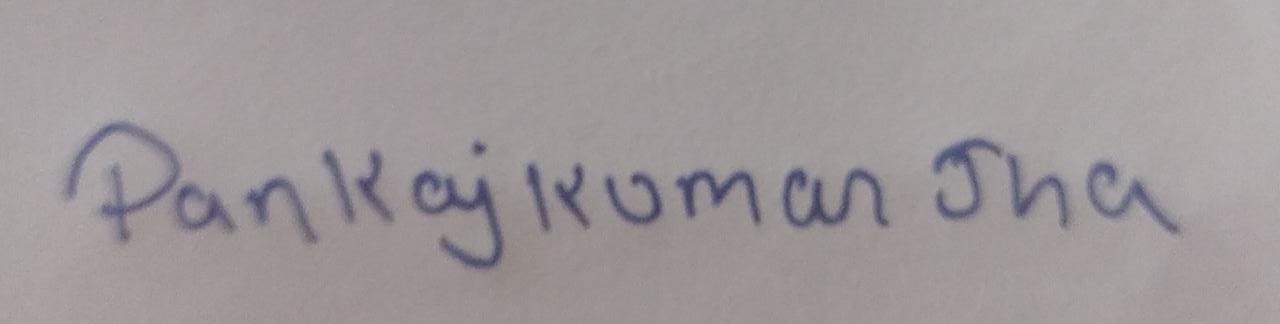 Pankajkumar Jha